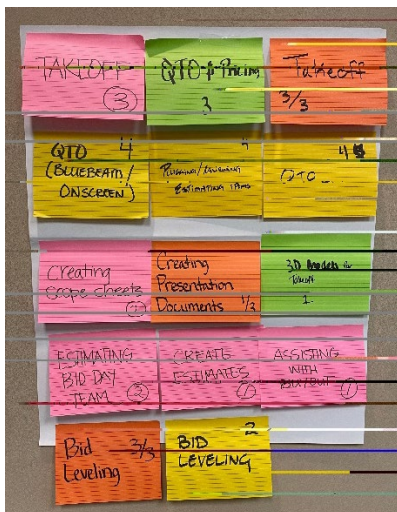 TAKEOFF
3
QTO-&-Pricing
3
Takeoff
3/3
QTO 4
(BLUEBEAM/
ONSCREEN)
4
ESTIMATING ITEMS
4
QTO
Creating
Scope sheets
Creating
Presentation
Documents 1/3
3D Models for
Takeoff
1
ESTIMATING
BID-DAY
TEAM 3
CREATE
ESTIMATES
ASSISTING
WITH
BUYOUT 1
Bid 3/3
Leveling
BID 2
LEVELING